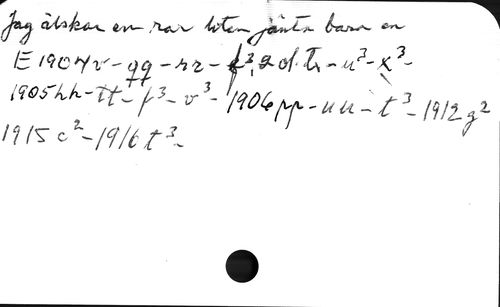 Jag älskar en rar liten jänta bara en
E 1904 v - qq - rz - f³, 2 d. tr - u³ - x³ -
1905 hh - tt - p³ - v³ - 1906 pp - uu - t³ - 1912 g²
1915 c² - 1916 t³ -